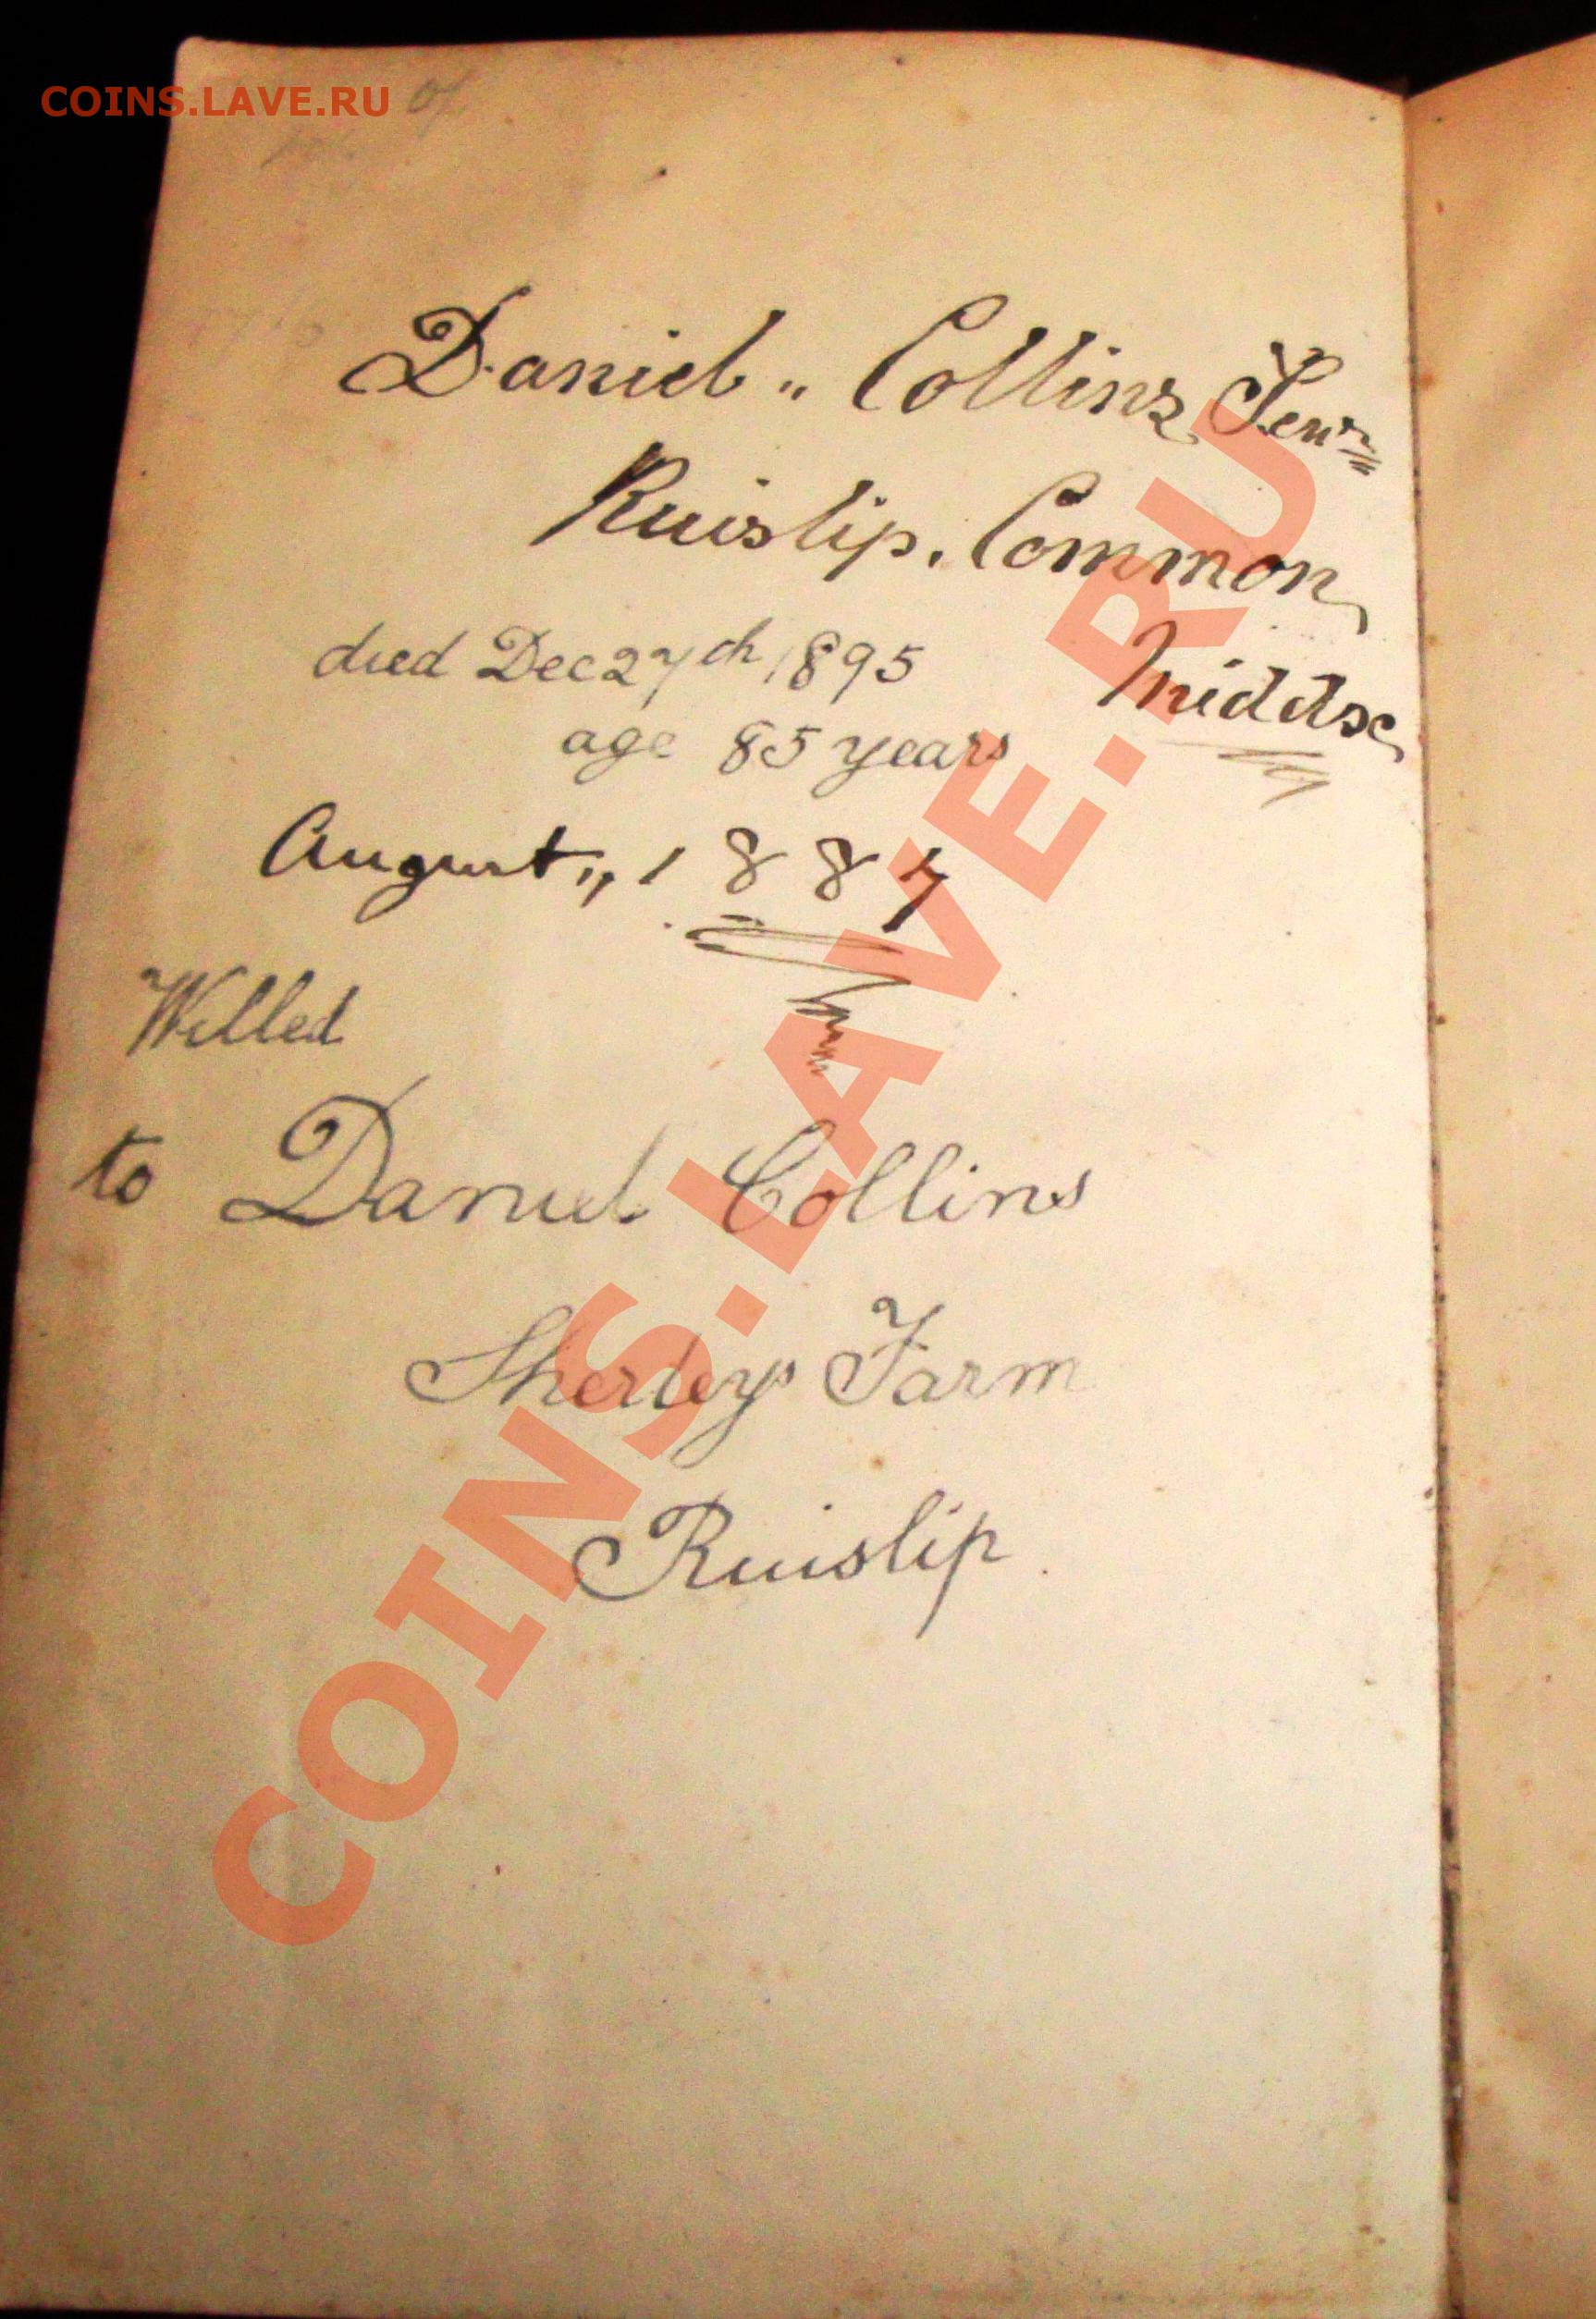 COINS.LAVE.RU
Daniel „ Collins Senr
Ruislip. Common
Middsx
died Dec 27th 1895
age 85 years
August„ 1887
Willed
to Daniel Collins
Sherleys Farm
Ruislip.
COINS.LAVE.RU